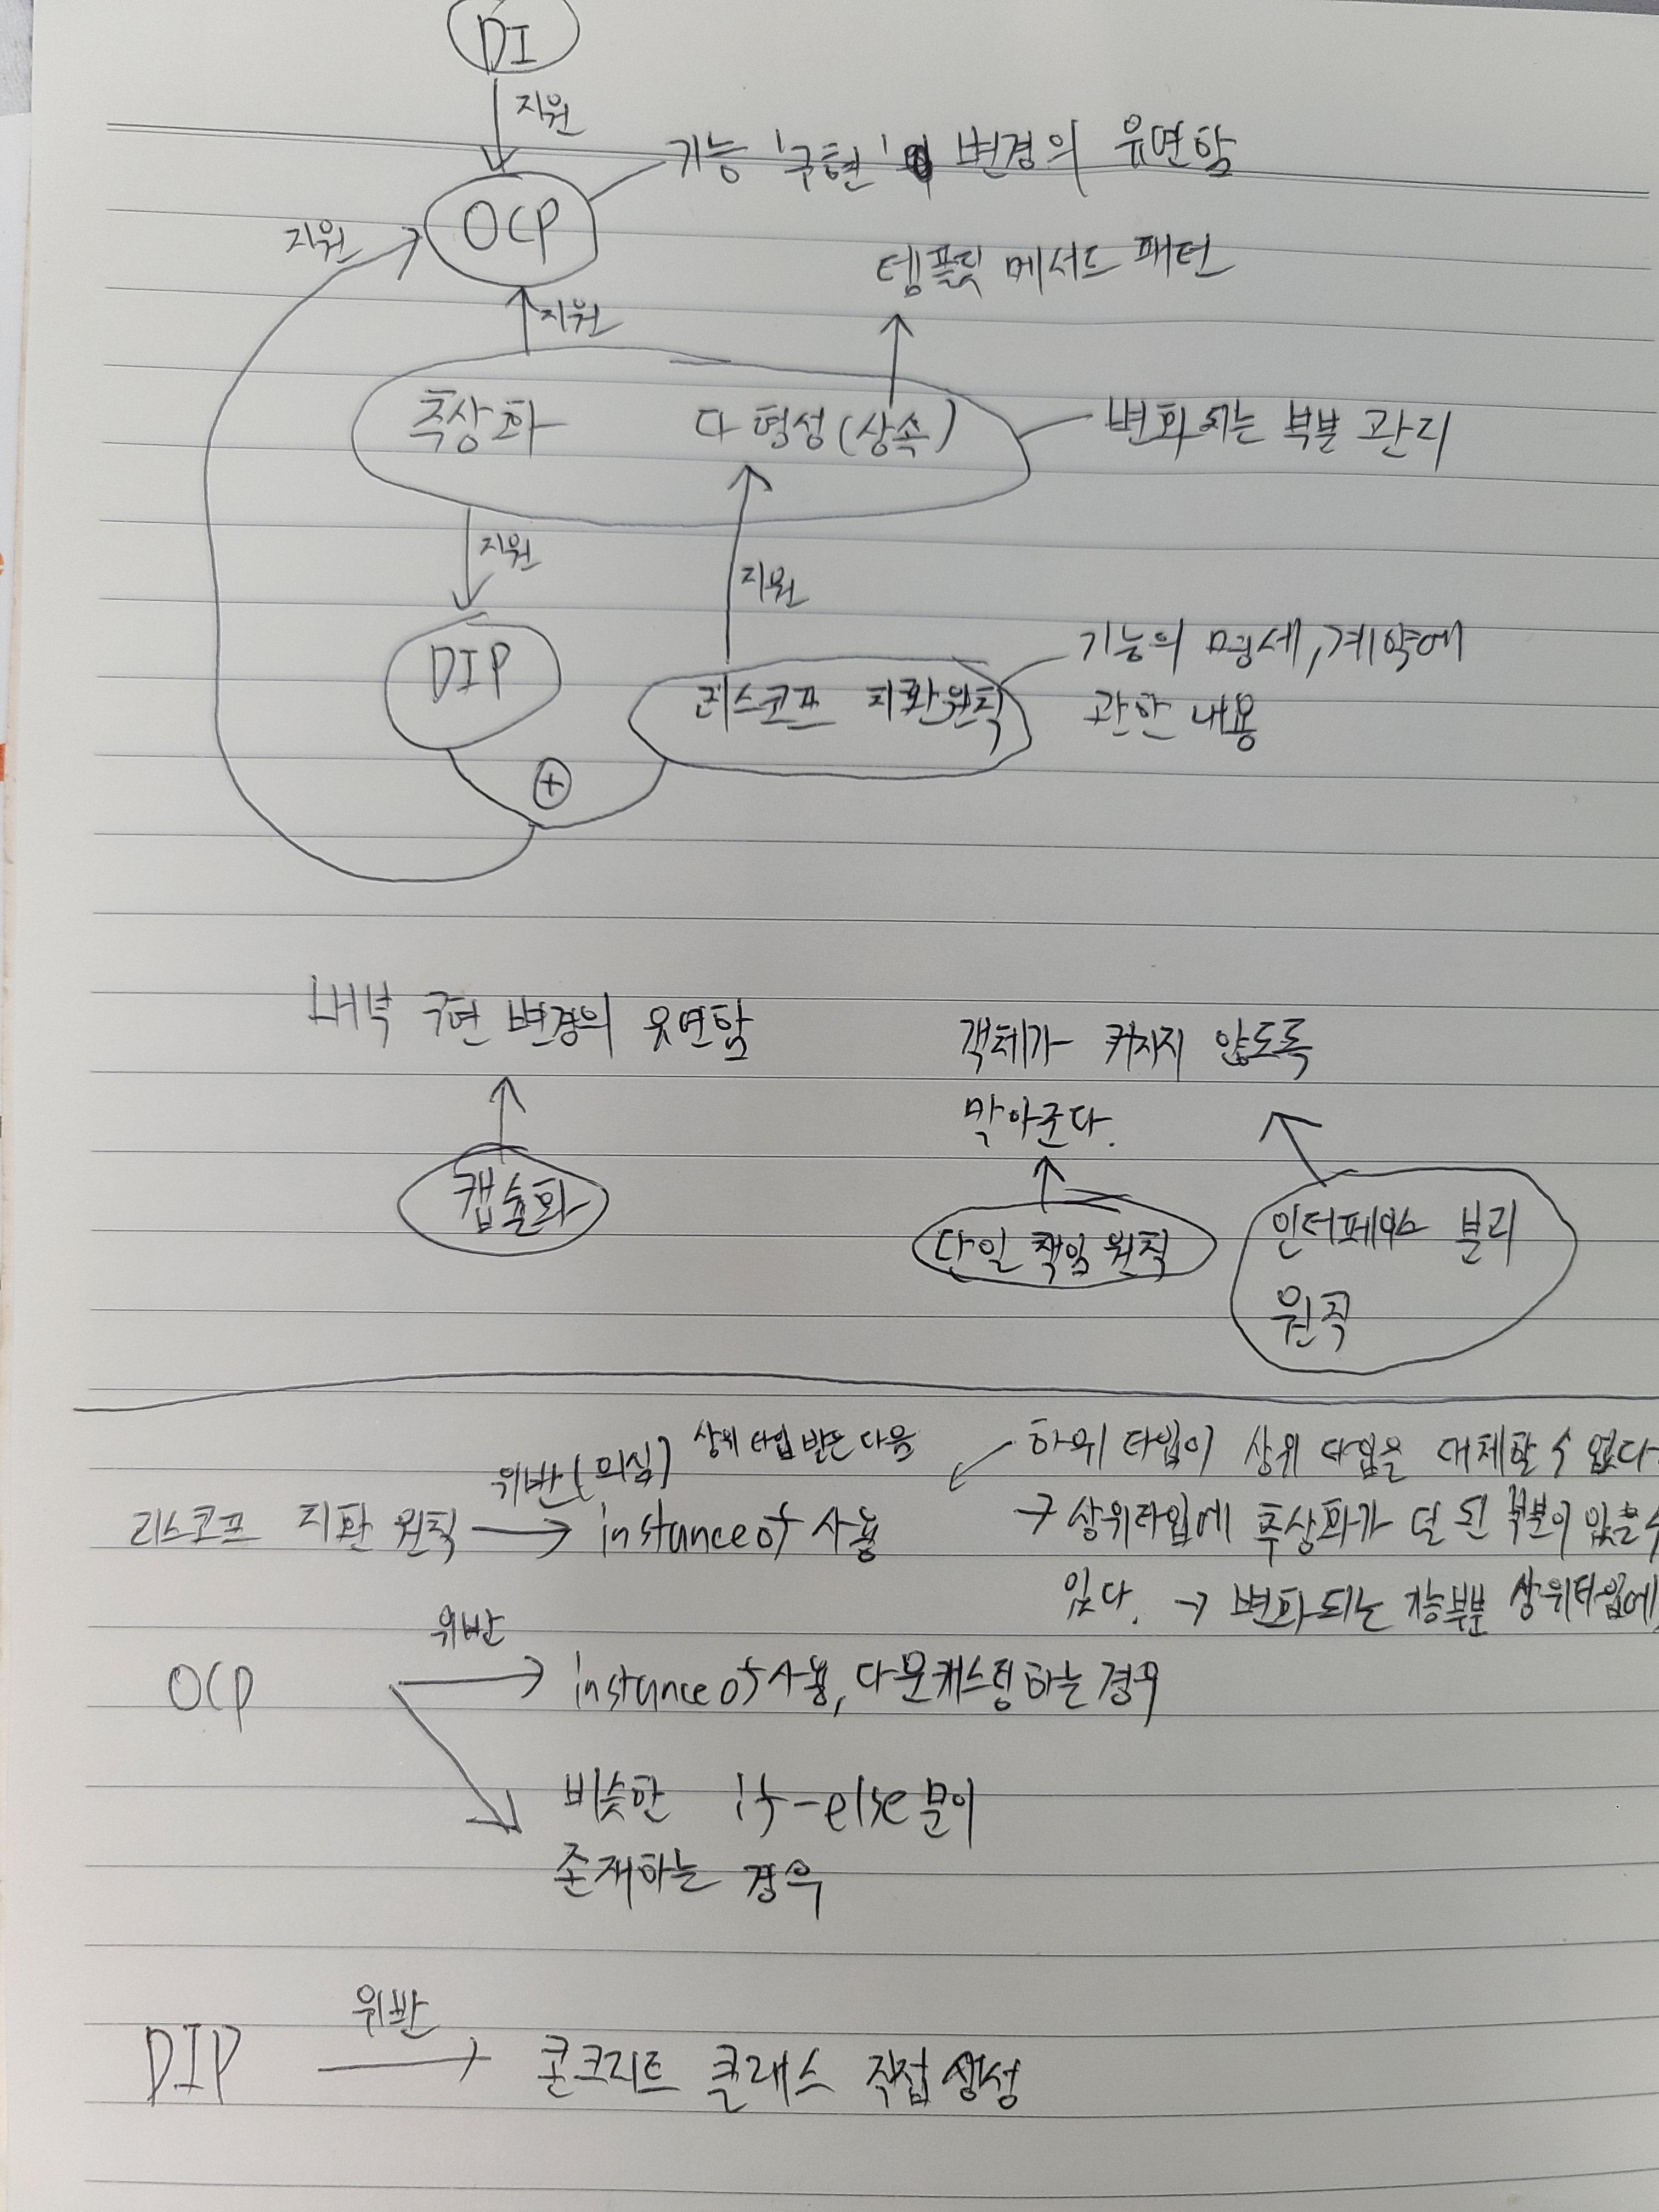 DI
지원
기능 '구현' 변경의 유연함
OCP
지원
템플릿 메서드 패턴
지원
추상화 다형성(상속)
변화되는 부분 관리
지원
지원
DIP
리스코프 치환원칙
기능의 명세, 계약에
관한 내용
+
내부 구현 변경의 유연함
객체가 커지지 않도록
막아준다.
캡슐화
단일 책임 원칙
인터페이스 분리
원칙
위반(의심) 상위 타입 받은 다음
하위 타입이 상위 타입을 대체할 수 없다.
리스코프 치환 원칙 → instanceof 사용
→ 상위타입에 추상화가 덜 된 부분이 있을 수
있다. → 변화되는 기능부분 상위타입에
위반
OCP → instanceof 사용, 다운캐스팅하는 경우
비슷한 if-else문이
존재하는 경우
위반
DIP → 콘크리트 클래스 직접 생성